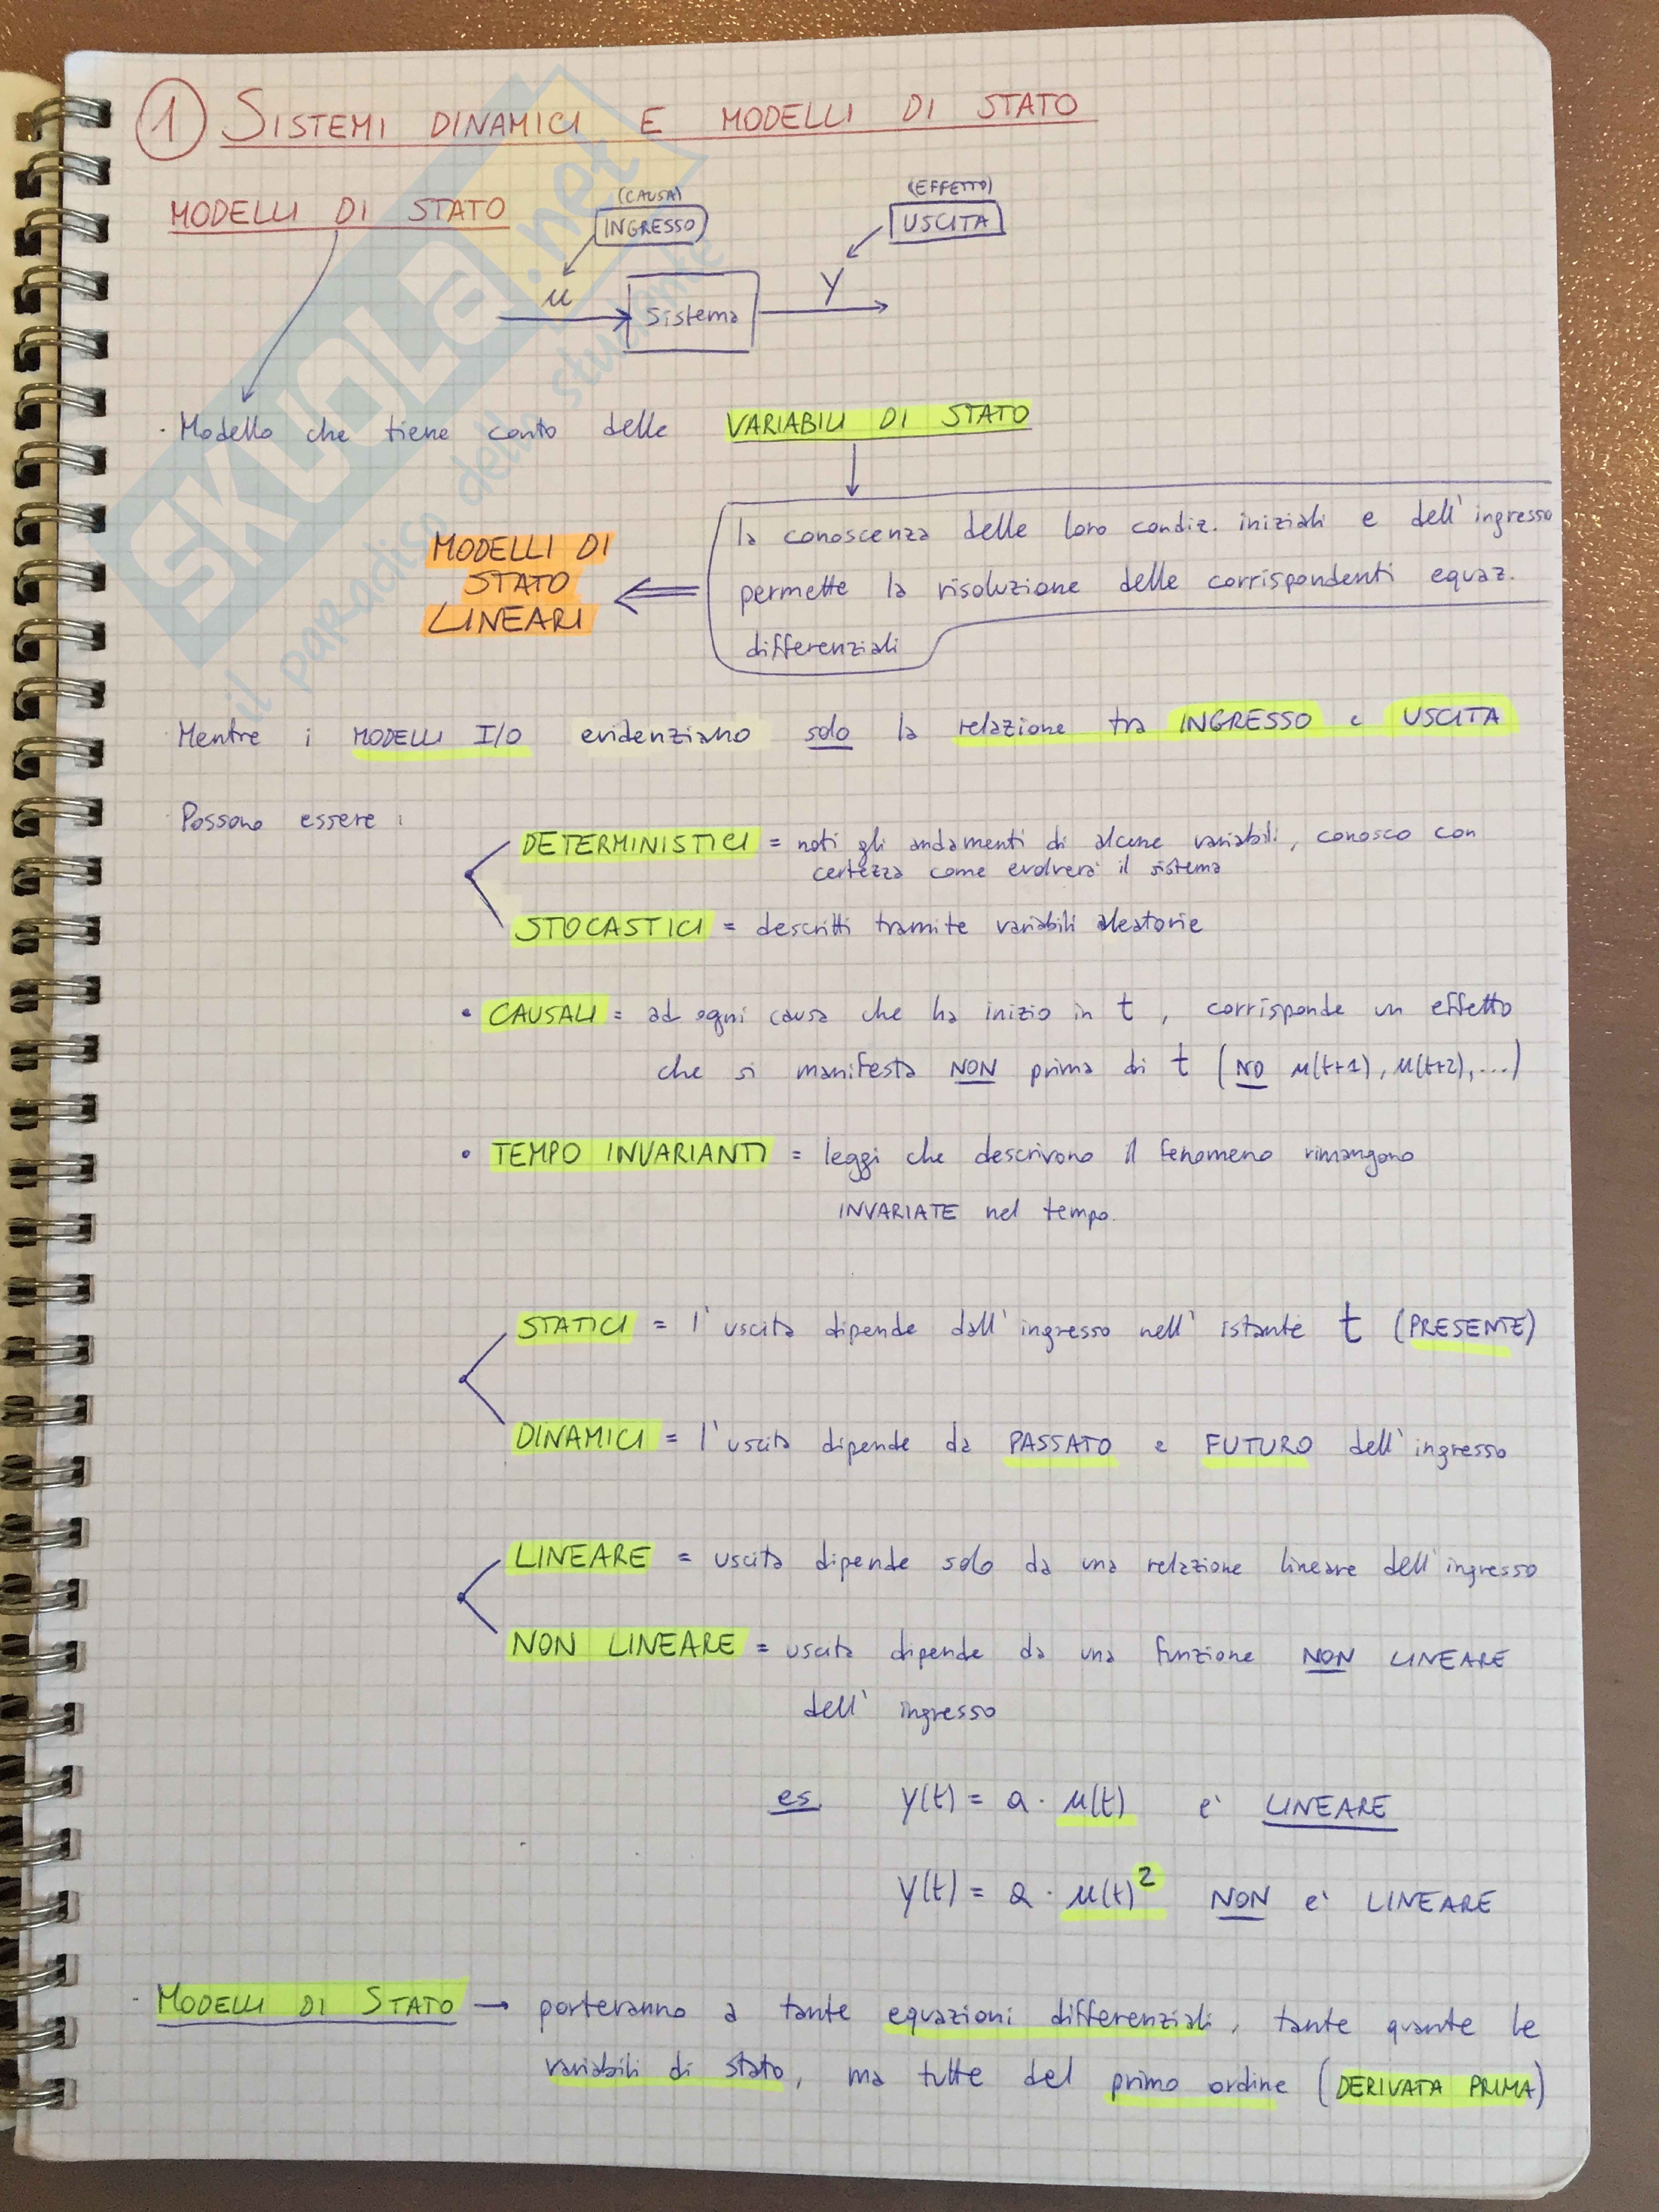 1 SISTEMI DINAMICI E MODELLI DI STATO
MODELLI DI STATO
(CAUSA)
INGRESSO
(EFFETTO)
USCITA
u
Sistema
y
· Modello che tiene conto delle VARIABILI DI STATO
la conoscenza delle loro condiz. iniziali e dell'ingresso
permette la risoluzione delle corrispondenti equaz.
differenziali
MODELLI DI
STATO
LINEARI
Mentre i MODELLI I/O evidenziano solo la relazione tra INGRESSO e USCITA
Possono essere :
DETERMINISTICI = noti gli andamenti di alcune variabili, conosco con
certezza come evolverà il sistema
STOCASTICI = descritti tramite variabili aleatorie
• CAUSALI = ad ogni causa che ha inizio in t , corrisponde un effetto
che si manifesta NON prima di t (NO u(t+1), u(t+2), ...)
• TEMPO INVARIANTI = leggi che descrivono il fenomeno rimangono
INVARIATE nel tempo.
STATICI = l'uscita dipende dall'ingresso nell'istante t (PRESENTE)
DINAMICI = l'uscita dipende da PASSATO e FUTURO dell'ingresso
LINEARE = uscita dipende solo da una relazione lineare dell'ingresso
NON LINEARE = uscita dipende da una funzione NON LINEARE
dell'ingresso
es. y(t) = a · u(t) e' LINEARE
y(t) = a · u(t)² NON e' LINEARE
· MODELLI DI STATO → porteranno a tante equazioni differenziali, tante quante le
variabili di stato, ma tutte del primo ordine (DERIVATA PRIMA)
SKUOLA.net
il paradiso dello studente